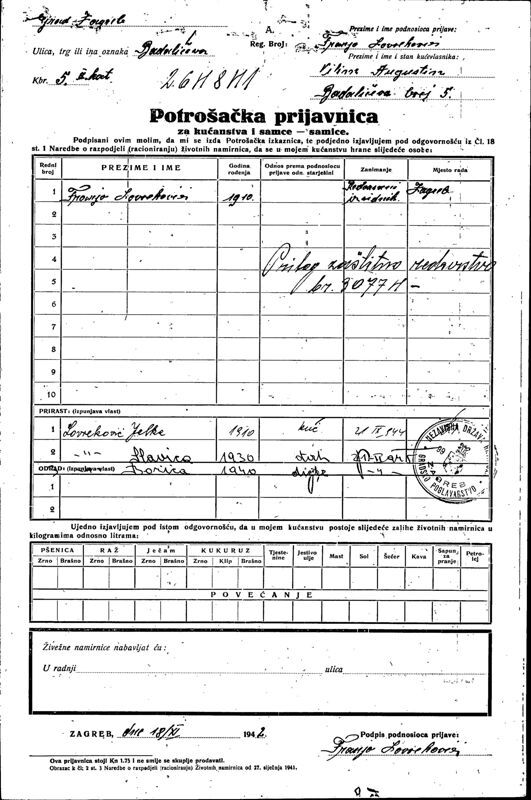 Grad Zagreb
Ulica, trg ili ina oznaka Badalićeva
Kbr. 5. II. kat.
A.
Reg. Broj:
Prezime i ime podnosioca prijave:
Franjo Lovreković
Prezime i ime i stan kućevlasnika:
Vilim Augustin
Badalićeva broj 5.
Potrošačka prijavnica
za kućanstva i samce — samice.
Podpisani ovim molim, da mi se izda Potrošačka izkaznica, te podjedno izjavljujem pod odgovornošću iz Čl. 18
st. 1 Naredbe o razpodjeli (racioniranju) životnih namirnica, da se u mojem kućanstvu hrane slijedeće osobe:
Redni broj PREZIME I IME Godina rođenja Odnos prema podnosiocu prijave odn. starješini Zanimanje Mjesto rada
1 Franjo Lovreković 1910. Zagreb
2
3
4 Prilog zaštitno redarstvo
5 br. 3077 H —
6
7
8
9
10
PRIRAST: (Izpunjava vlast)
1 Lovreković Jelka 1910 kuć
2 -"- Slavica 1930
ODPAD: (Izpunjava vlast) Dorica 1940
1
2
NEZAVISNA DRŽAVA
GRADSKO POGLAVARSTVO
ZAGREB
Ujedno izjavljujem pod istom odgovornošću, da u mojem kućanstvu postoje slijedeće zalihe životnih namirnica u
kilogramima odnosno litrama:
PŠENICA RAŽ Ječam KUKURUZ Tjestenine Jestivo ulje Mast Sol Šećer Kava Sapun za pranje Petrolej
Zrno Brašno Zrno Brašno Zrno Brašno Zrno Klip Brašno
POVEĆANJE
Živežne namirnice nabavljat ću:
U radnji ulica
ZAGREB, dne 18/XI 1942.
Podpis podnosioca prijave:
Franjo Lovreković
Ova prijavnica stoji Kn 1.75 i ne smije se skuplje prodavati.
Obrazac k čl. 2 st. 3 Naredbe o razpodjeli (racioniranju) životnih namirnica od 27. siječnja 1941.